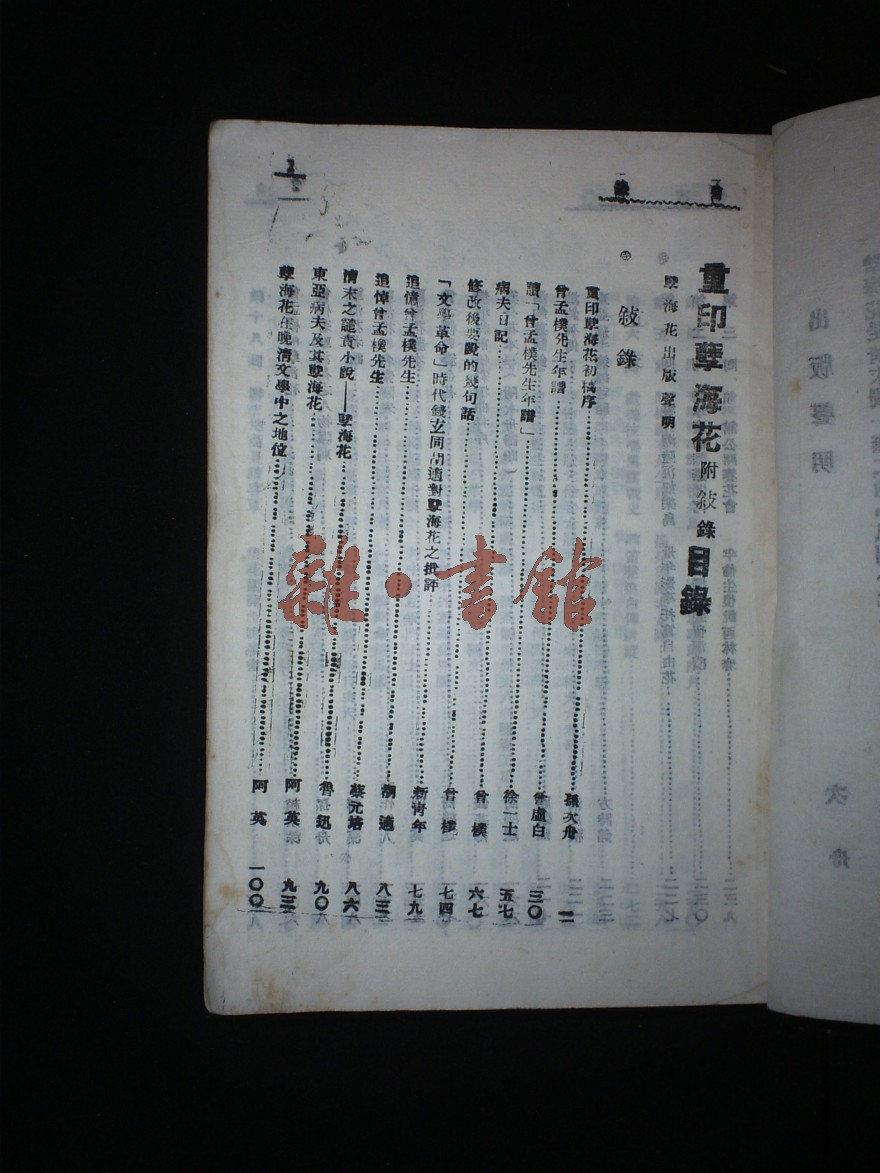 出版聲明
次舟
重印孽海花附敍錄目錄
孽海花出版聲明
敍錄
重印孽海花初稿序 孫次舟 二
曾孟樸先生年譜 曾虛白 三〇
讀「曾孟樸先生年譜」 徐一士 五七
病夫日記 曾樸 六七
修改後要說的幾句話 曾樸 七四
「文學革命」時代錢玄同胡適對孽海花之批評 新青年 七九
追憶曾孟樸先生 胡適 八三
追悼曾孟樸先生 蔡元培 八六
清末之譴責小說——孽海花 魯迅 九〇
東亞病夫及其孽海花 阿英 九三
孽海花在晚清文學中之地位 阿英 一〇〇
雜·書館